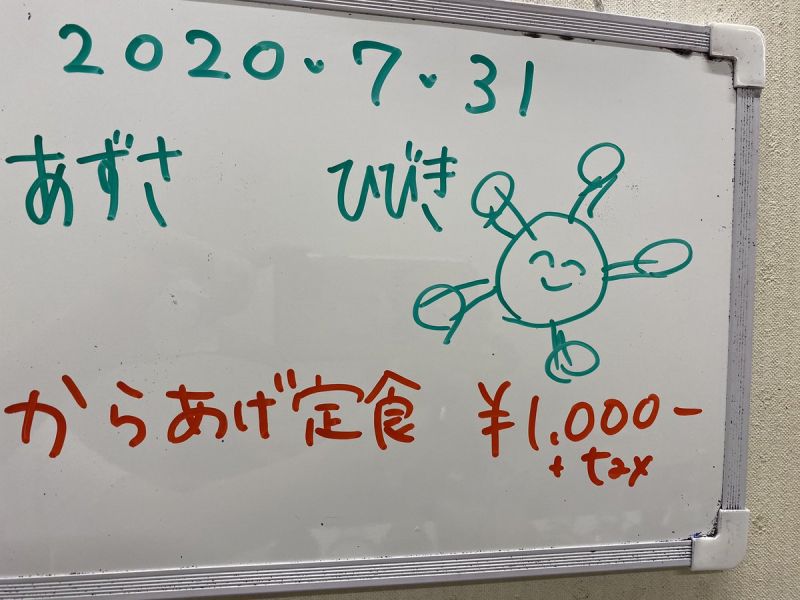 2020.7.31
あずさ ひびき
からあげ定食 ¥1.000-
+tax